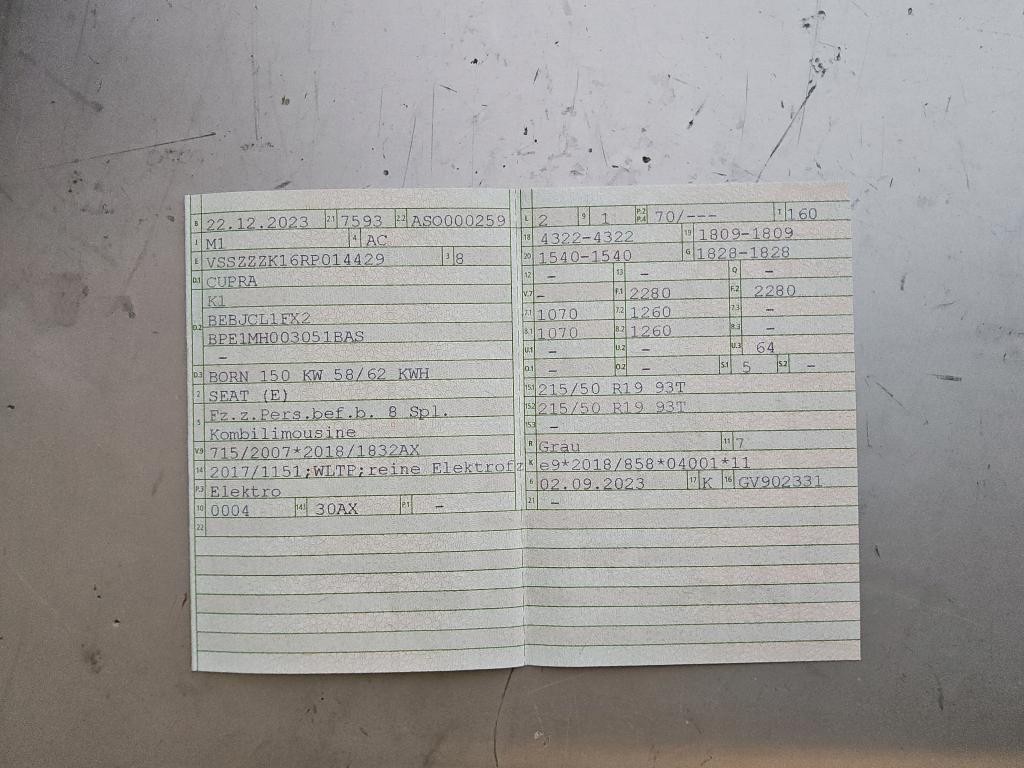 B 22.12.2023 2.1 7593 2.2 ASO000259
J M1 4 AC
E VSSZZZK16RP014429 3 8
D.1 CUPRA
K1
D.2 BEBJCL1FX2
BPE1MH003051BAS
–
D.3 BORN 150 KW 58/62 KWH
2 SEAT (E)
5 Fz.z.Pers.bef.b. 8 Spl.
Kombilimousine
V.9 715/2007*2018/1832AX
14 2017/1151;WLTP;reine Elektrofz
P.3 Elektro
10 0004 14.1 30AX P.1 –
22
L 2 9 1 P.2 P.4 70/--- T 160
18 4322-4322 19 1809-1809
20 1540-1540 G 1828-1828
12 – 13 – Q –
V.7 – F.1 2280 F.2 2280
7.1 1070 7.2 1260 7.3 –
8.1 1070 8.2 1260 8.3 –
U.1 – U.2 – U.3 64
O.1 – O.2 – S.1 5 S.2 –
15.1 215/50 R19 93T
15.2 215/50 R19 93T
15.3 –
R Grau 11 7
K e9*2018/858*04001*11
6 02.09.2023 17 K 16 GV902331
21 –